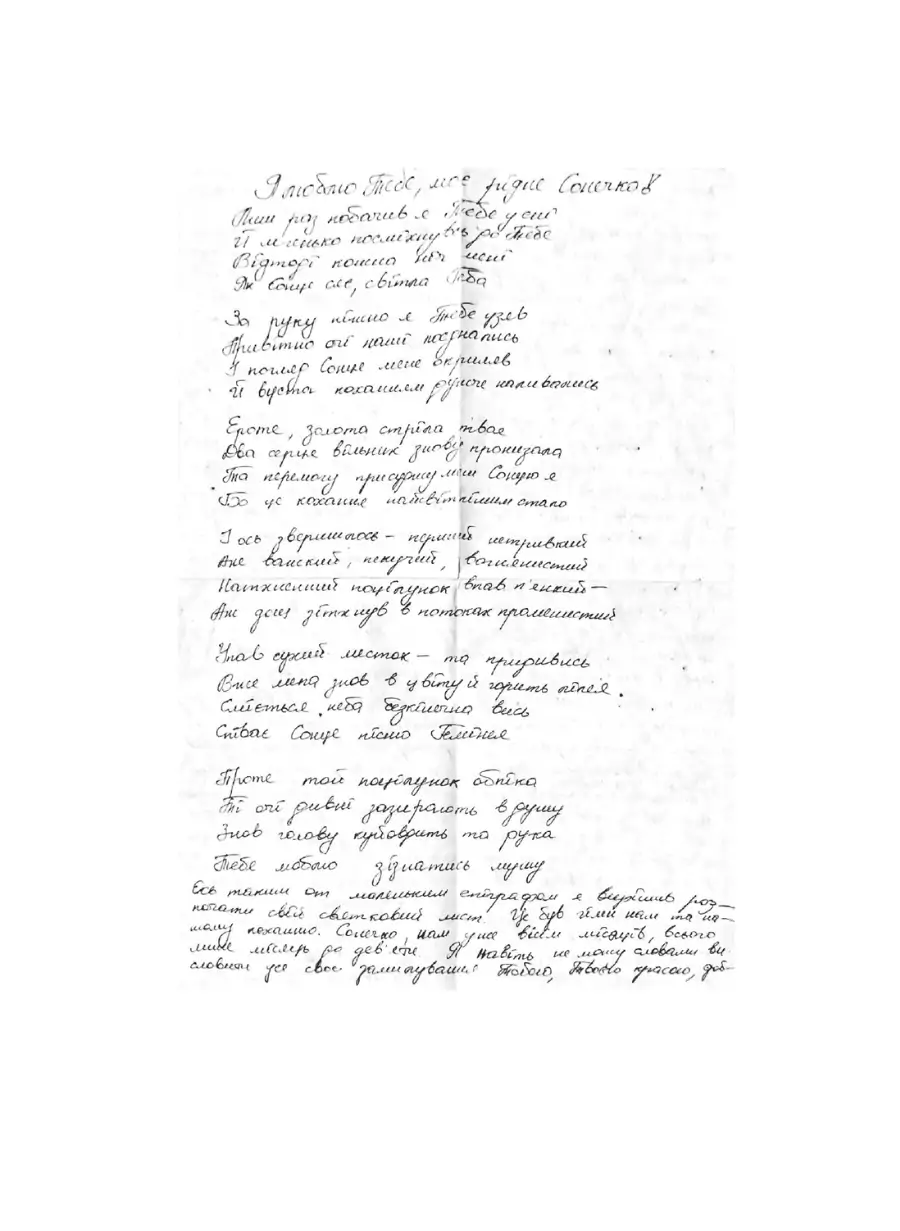 Я люблю Тебе, моє рідне Сонечко!
Лиш раз побачив я Тебе у сні
Й м'янько посміхнувсь до Тебе
Відтоді кожна ніч мені
Як Сонце сяє, світла Геба
За руку ніжно я Тебе узяв
Привітно очі наші поєднались
І погляд Сонце мене окриляв
Й вуста коханням дужче наливались
Ероте, золота стріла твоя
Два серця вільних знову пронизала
Та перемогу присуджу моїм Сонцю я
Бо це кохання найсвітлішим стало
І ось звершилось – перший нетривкий
Але палкий, пекучий, вогнянистий
Натхненний поцілунок впав п'янкий –
Аж дощ зітхнув в потоках променистий
Упав сухий листок – та придивись
Вже липа знов в цвіту й горить лілея.
Сміється неба безкінечна вись
Співає Сонце пісню Гемінея
Проте той поцілунок обпіка
Ті очі дивні зазирають в душу
Знов голову куйовдить та рука
Тебе люблю зізнатись мушу
Ось таким от маленьким епіграфом я вирішив роз–
почати свій святковий лист. Це був гімн нам та на–
шому коханню. Сонечко, нам уже вісім місяців, всього
лише місяць до дев'яти. Я навіть не можу словами ви
словити усе своє замилування Тобою, Твоєю красою, доб–